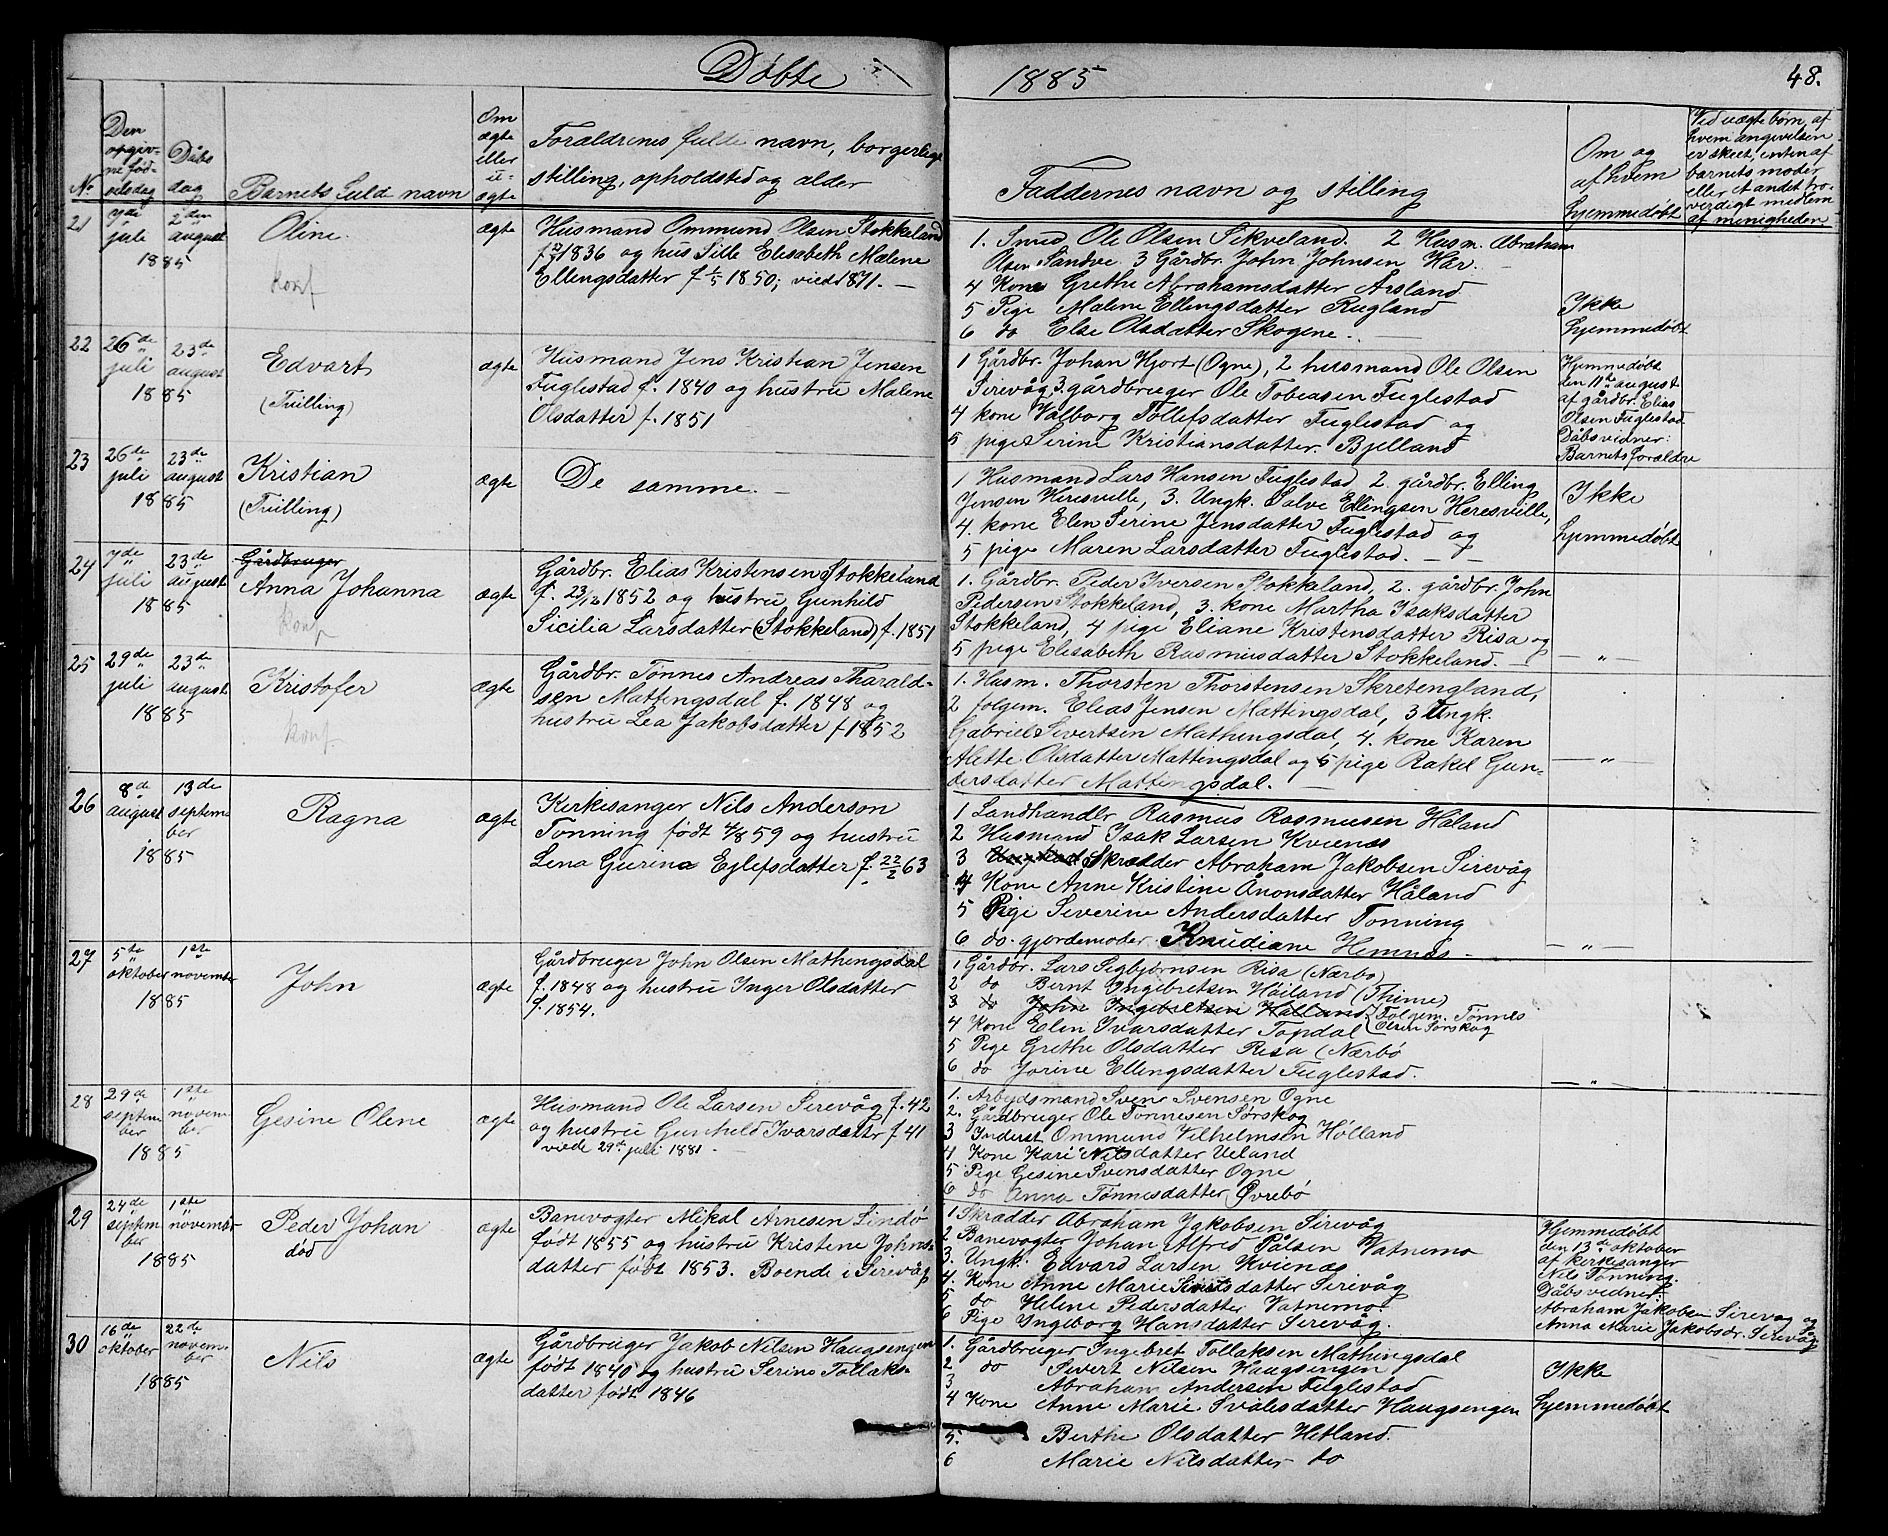 Døbte 1885 48.
No
Den opgivne fødselsdag
Dåbsdag
Barnets fulde navn
Om ægte eller uægte
Forældrenes fulde navn, borgerlige
stilling, opholdsted og alder
Faddernes navn og stilling
Om og
af hvem
hjemmedøbt
Ved uægte børn, af
hvem angivelsen
er skeet, enten af
barnets moder
eller et andet tro-
verdigt medlem
af menigheden.
21
7de juli 1885
2den august
Oline.
konf
ægte
Husmand Ommund Olsen Stokkeland
1836 og hus Sille Elisabeth Malene
Ellingsdatter f 1/5 1850; viede 1871. —
1. Smed Ole Olsen Sikveland. 2 Husm. Abraham
Olsen Sandve. 3 Gårdbr. John Johnsen Hær. —
4 Kone Grethe Abrahamsdatter Årsland
5 Pige Malene Ellingsdatter Rugland
6 do Else Olsdatter Skogene. —
Ikke
hjemmedøbt
22
26de juli 1885
23de august
Edvart
(Tvilling)
ægte
Husmand Jens Kristian Jensen
Fuglestad f. 1840 og hustru Malene
Olsdatter f. 1851
1 Gårdbr. Johan Hjort (Ogne), 2 husmand Ole Olsen
Sirevåg 3. gårdbruger Ole Tobiasen Fuglestad
4 kone Valborg Tollefsdatter Fuglestad og
5 pige Serine Kristiansdatter Bjelland
Hjemmedøbt
den 11te august
af gårdbr. Elias
Olsen Fuglestad
Dåbsvidner:
Barnets forældre
23
26de juli 1885
23de august
Kristian
(Tvilling)
ægte
De samme. —
1 Husmand Lars Hansen Fuglestad 2. gårdbr. Elling
Jensen Heresville, 3. Ungk. Salve Ellingsen Heresville,
4. kone Elen Serine Jensdatter Fuglestad og
5 pige Maren Larsdatter Fuglestad. —
Ikke
hjemmedøbt
24
7de juli 1885
23de august
Gårdbruger
Anna Johanna
konf
ægte
Gårdbr. Elias Kristensen Stokkeland
f. 23/12 1852 og hustru Gunhild
Sicilia Larsdatter (Stokkeland) f. 1851
1. Gårdbr. Peder Iversen Stokkeland, 2. gårdbr. John
Pedersen Stokkeland, 3. kone Martha Isaksdatter
Stokkeland, 4 pige Eliane Kristensdatter Risa og
5 pige Elisabeth Rasmusdatter Stokkeland. —
— " —
25
29de juli 1885
23de august
Kristofer
konf
ægte
Gårdbr. Tønnes Andreas Tharald-
sen Mattingsdal f. 1848 og
hustru Lea Jakobsdatter f 1852
1. Husm. Thorsten Thorstensen Skretengland,
2 folgem. Elias Jensen Mattingsdal, 3 Ungk.
Gabriel Sivertsen Mathingsdal, 4. kone Karen
Alette Olsdatter Mattingsdal og 5 pige Rakel Gun-
dersdatter Mattingsdal. —
— " —
26
8de august 1885
13de september
Ragna
ægte
Kirkesanger Nils Anderson
Tønning født 4/8 59 og hustru
Lena Gurina Ejlefsdatter f. 22/2 63
1 Landhandler Rasmus Rasmussen Håland
2 Husmand Isak Larsen Kvienæs
3 Ungkarl Skrædder Abraham Jakobsen Sirevåg
4 Kone Anne Kristine Ånonsdatter Håland
5 Pige Severine Andersdatter Tønning
6 do. gjordemoder Knudiane Hemnæs. —
— " —
27
5te oktober 1885
1ste november
John
ægte
Gårdbruger John Olsen Mathingsdal
f. 1848 og hustru Inger Olsdatter
f. 1854.
1 Gårdbr. Lars Sigbjørnsen Risa (Nærbø)
2 do Bernt Ingebretsen Høiland (Thime)
3 do John Ingebretsen Hølland. Folgem. Tønnes
Olsen Sørskog
4 Kone Elen Ivarsdatter Topdal
5 Pige Grethe Olsdatter Risa (Nærbø
6 do Jorine Ellingsdatter Fuglestad.
— " —
28
29de september 1885
1ste november
Gesine Olene
ægte
Husmand Ole Larsen Sirevåg f. 42
og hustru Gunhild Ivarsdattr f 41
viede 29de juli 1881. —
1. Arbejdsmand Sven Svensen Ogne
2. Gårdbruger Ole Tønnesen Sørskog
3 Inderst Ommund Vilhelmsen Hølland
4 Kone Kari Nilsdatter Ueland
5 Pige Gesine Svensdatter Ogne
6 do Anna Tønnesdatter Øvrebø
29
24de september 1885
1ste november
Peder Johan
død
ægte
Banevogter Mikal Arnesen Lindø
født 1855 og hustru Kristene Johns-
datter født 1853. Boende i Sirevåg
1 Skrædder Abraham Jakobsen Sirevåg
2 Banevogter Johan Alfred Pålsen Vatnemo
3. Ungk. Edvard Larsen Kvienæs
4. Kone Anne Marie Sivertsdatter Sirevåg
5 do Helene Pedersdatter Vatnemo.
6 Pige Ingeborg Hansdatter Sirevåg.
Hjemmedøbt
den 13de oktober
af kirkesanger
Nils Tønning.
Dåbsvidner:
Abraham Jakobsen Sirevåg og
Anna Marie Jakobsdr. Sirevåg
30
16de oktober 1885
22de november
Nils
ægte
Gårdbruger Jakob Nilsen Haugsengen
født 1840 og hustru Serine Tollaks-
datter født 1846
1. Gårdbruger Ingebret Tollaksen Mathingsdal
2 do Sivert Nilsen Haugsengen
3 Abraham Andersen Fuglestad
4 Kone Anne Marie Svalesdatter Haugsengen
5. Berthe Olsdatter Hetland.
6 Marie Nilsdatter do
Ikke
hjemmedøbt